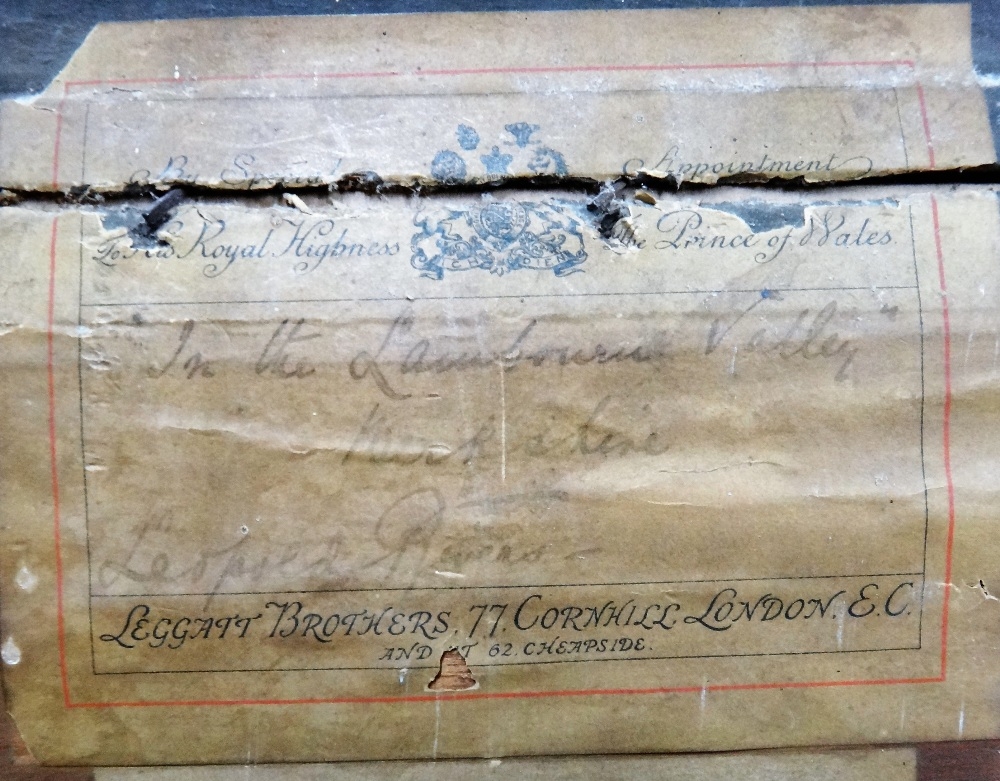 By Special Appointment
To His Royal Highness The Prince of Wales
"In the Lambourne Valley"
Berkshire
Leopold Rivers
LEGGATT BROTHERS, 77, CORNHILL LONDON, E.C.
AND AT 62, CHEAPSIDE.